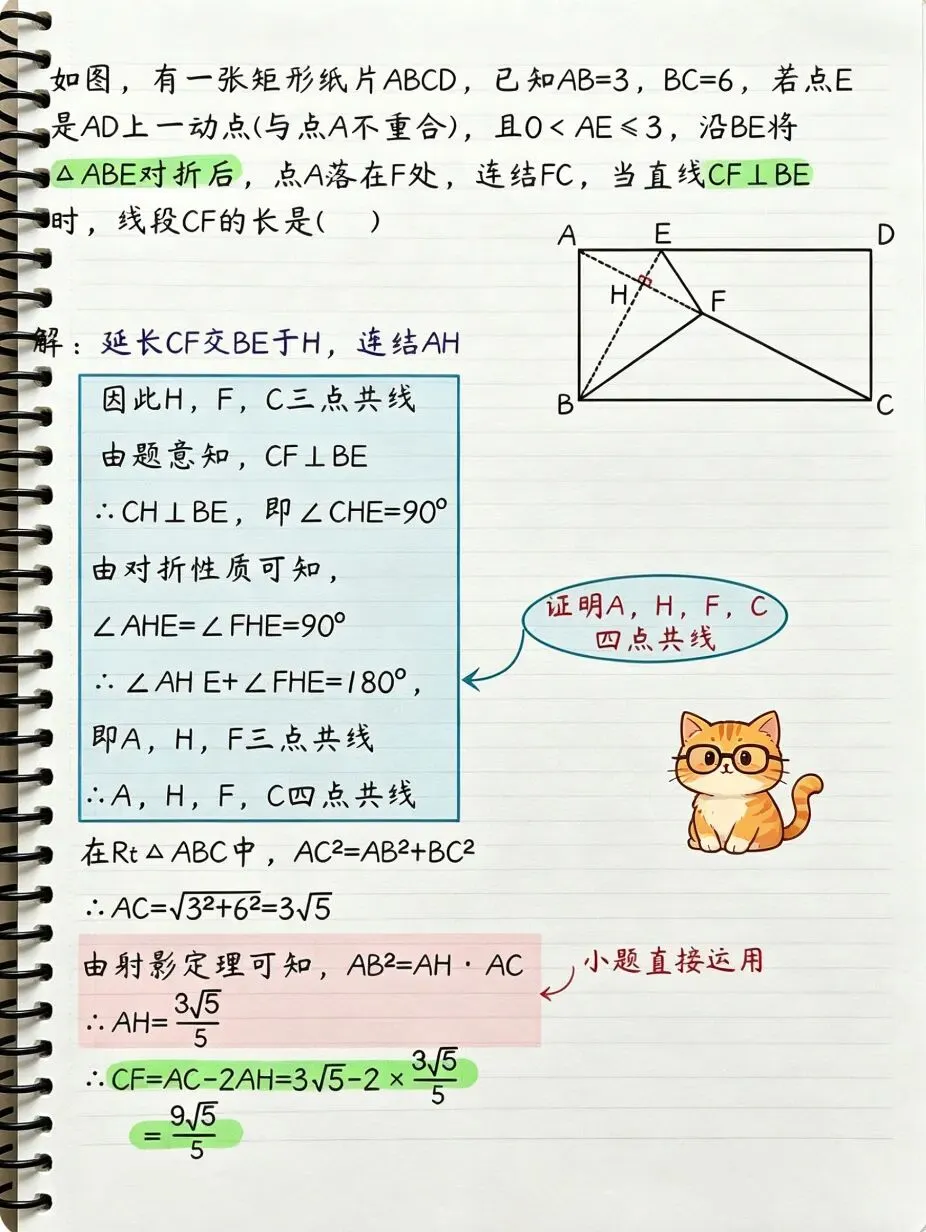 如图，有一张矩形纸片ABCD，已知AB=3，BC=6，若点E
是AD上一动点(与点A不重合)，且0＜AE≤3，沿BE将
△ABE对折后，点A落在F处，连结FC，当直线CF⊥BE
时，线段CF的长是(　)
A E D
H F
B C
解：延长CF交BE于H，连结AH
因此H，F，C三点共线
由题意知，CF⊥BE
∴CH⊥BE，即∠CHE=90°
由对折性质可知，
∠AHE=∠FHE=90°
∴∠AH E+∠FHE=180°，
即A，H，F三点共线
∴A，H，F，C四点共线
证明A，H，F，C
四点共线
在Rt△ABC中，AC²=AB²+BC²
∴AC=√3²+6²=3√5
由射影定理可知，AB²=AH·AC
小题直接运用
∴AH=3√5/5
∴CF=AC-2AH=3√5-2×3√5/5
=9√5/5